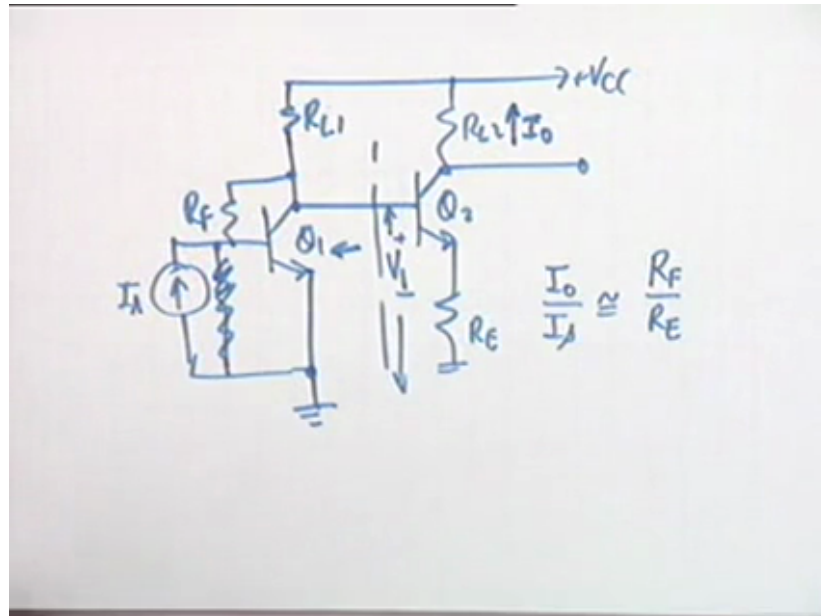 +VCC
RL1
RL2 ↑ I0
RF
Q1 ←
Q2
Is
+
V1
-
RE
I0/Is ≅ RF/RE